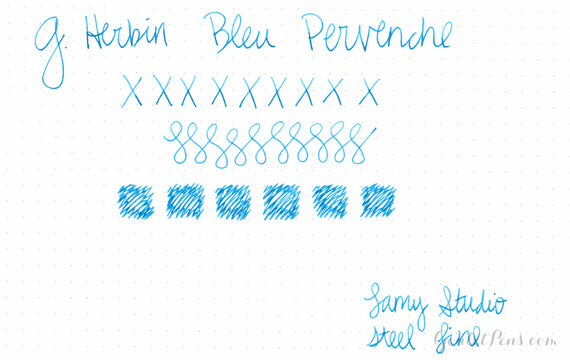 J. Herbin Bleu Pervenche
X X X X X X X X X
Lamy Studio
Steel Fine
GouletPens.com